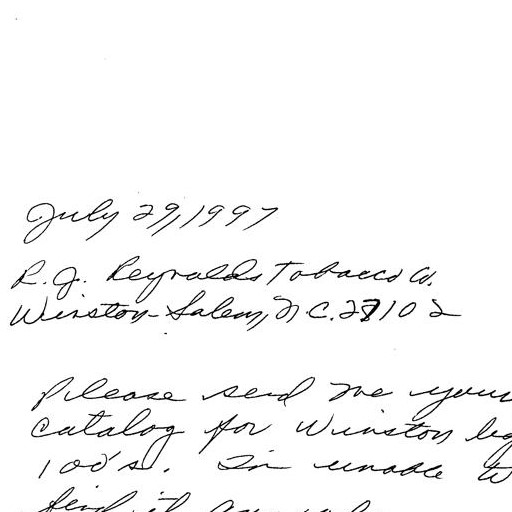 July 29, 1997
R. J. Reynolds Tobacco Co.
Winston-Salem, N.C. 27102
Please send me your
catalog for Winston
100's. I'm unable
find it